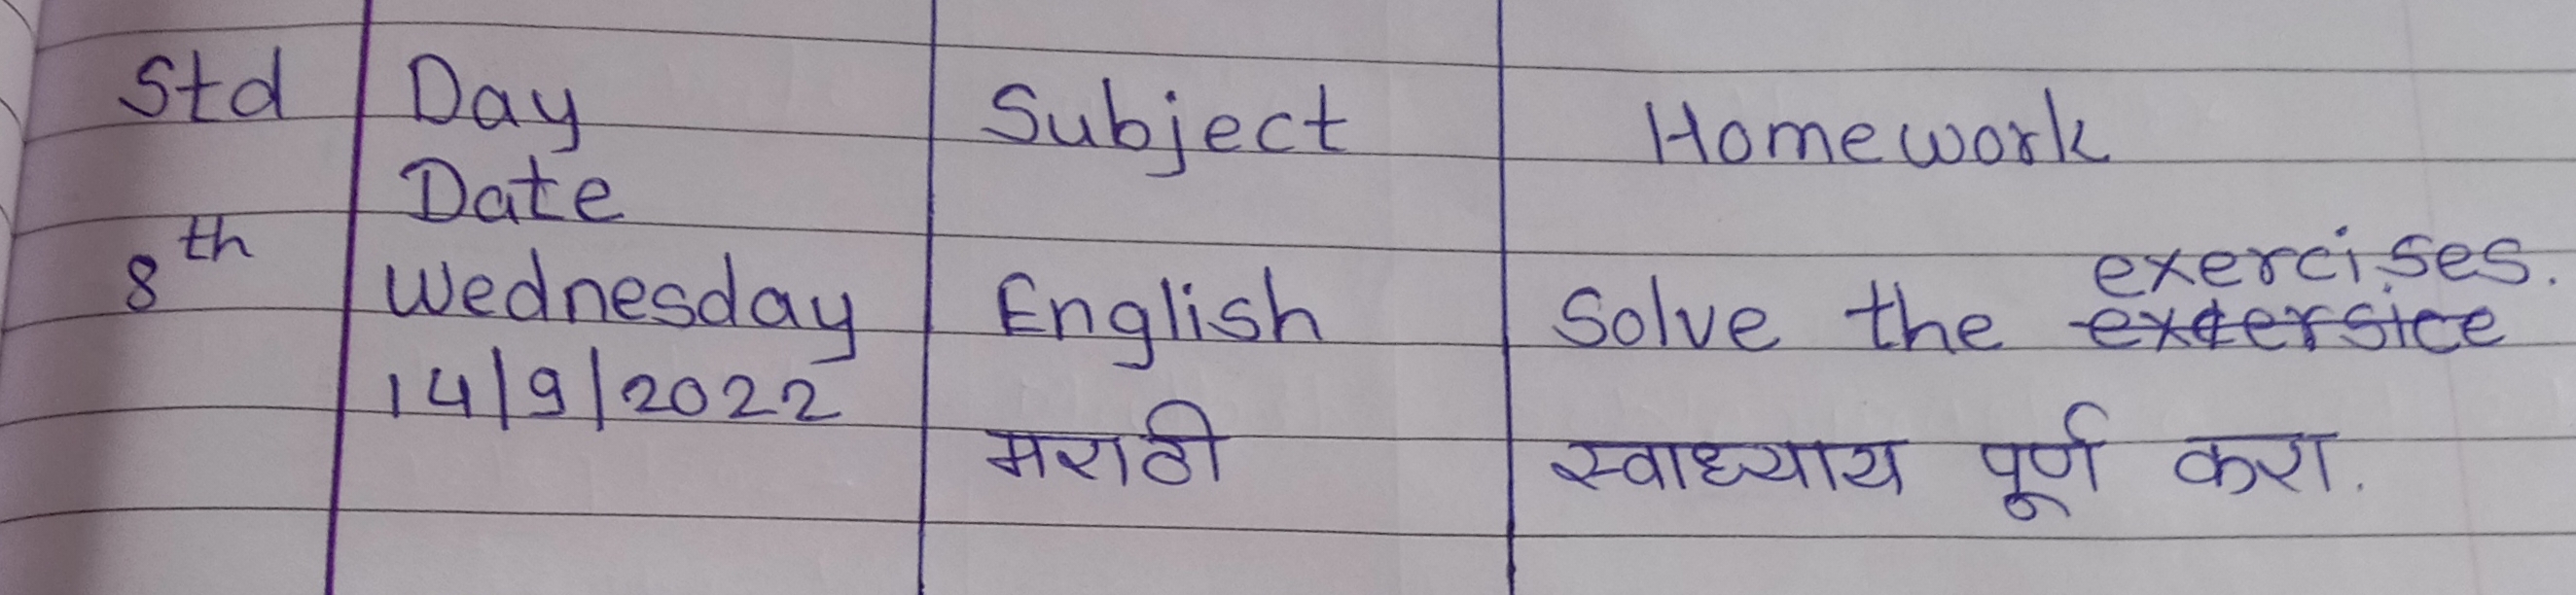 Std Day Subject Homework
Date
8th Wednesday English Solve the exercises.
14/9/2022
मराठी स्वाध्याय पूर्ण करा.